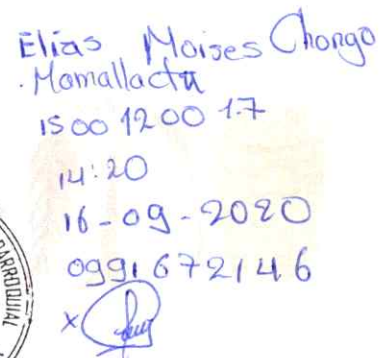 Elias Moises Chongo
Mamallacta
1500 1200 1.7
14:20
16-09-2020
0991672146
x
PARROQUIAL